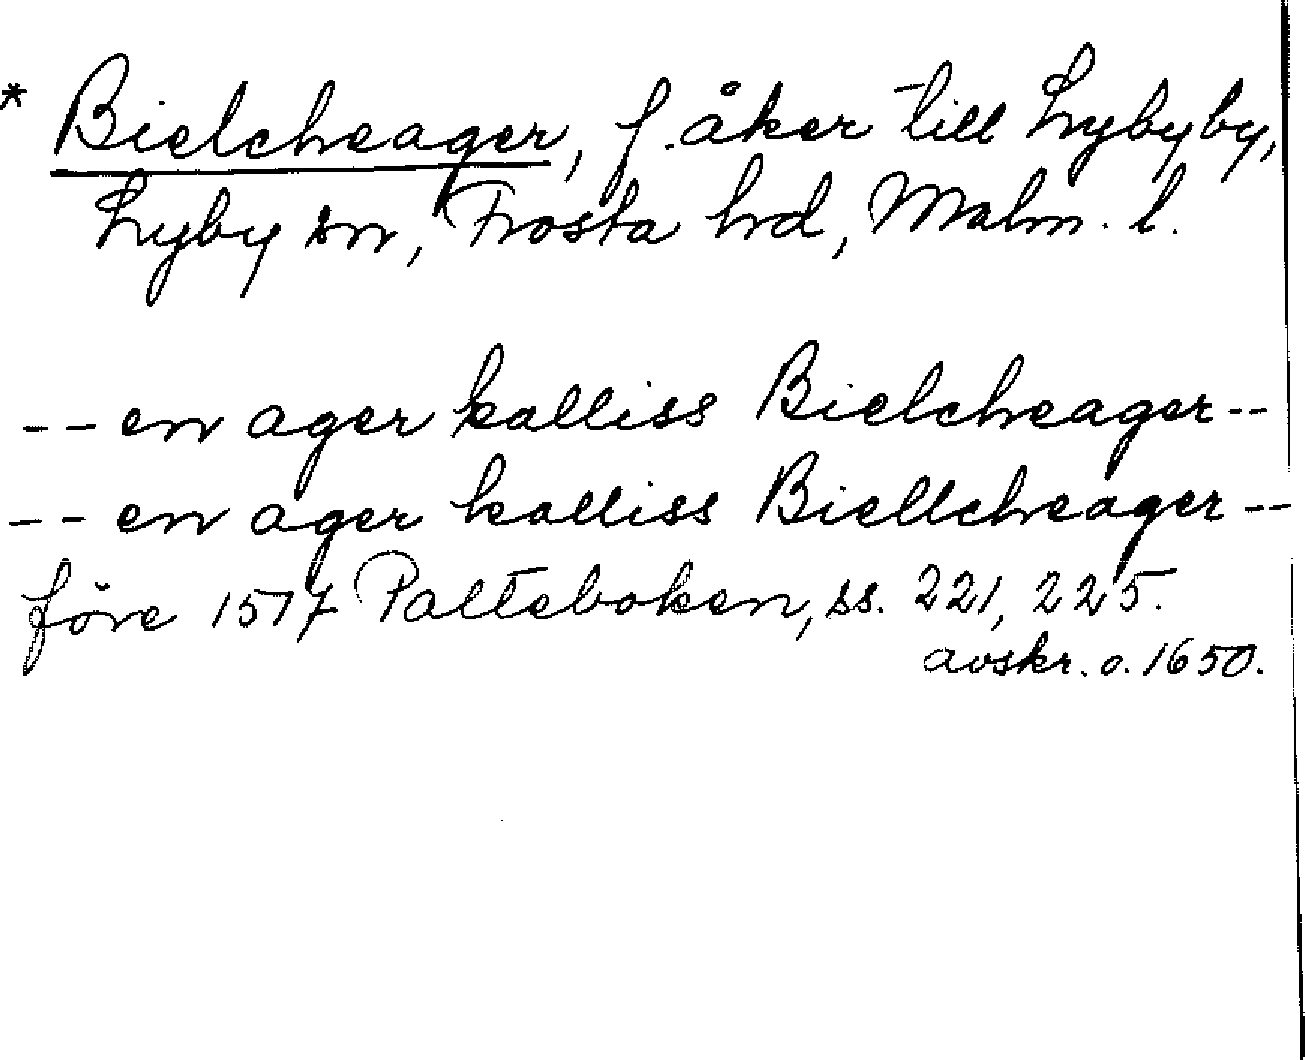 * Bielcheager, f. åker till Lybyby,
Lyby sn, Frosta hd, Malm. l.
-- en ager kalliss Bielcheager --
-- en ager kalliss Biellcheager --
före 1517 Palteboken, ss. 221, 225.
avskr. o. 1650.